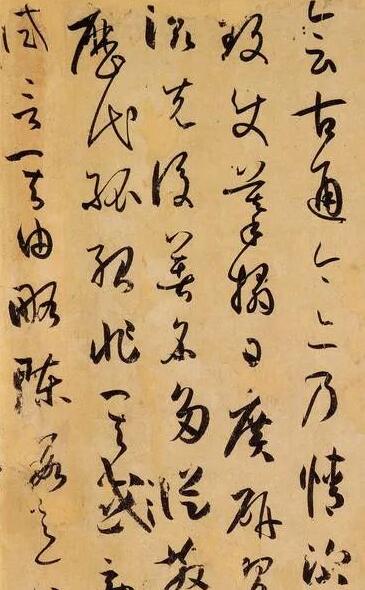 會古通今亦乃情深
致使摹搨日廣研習
滋先後著名多從散
歷代孤紹非其效
試言其由略陳數意